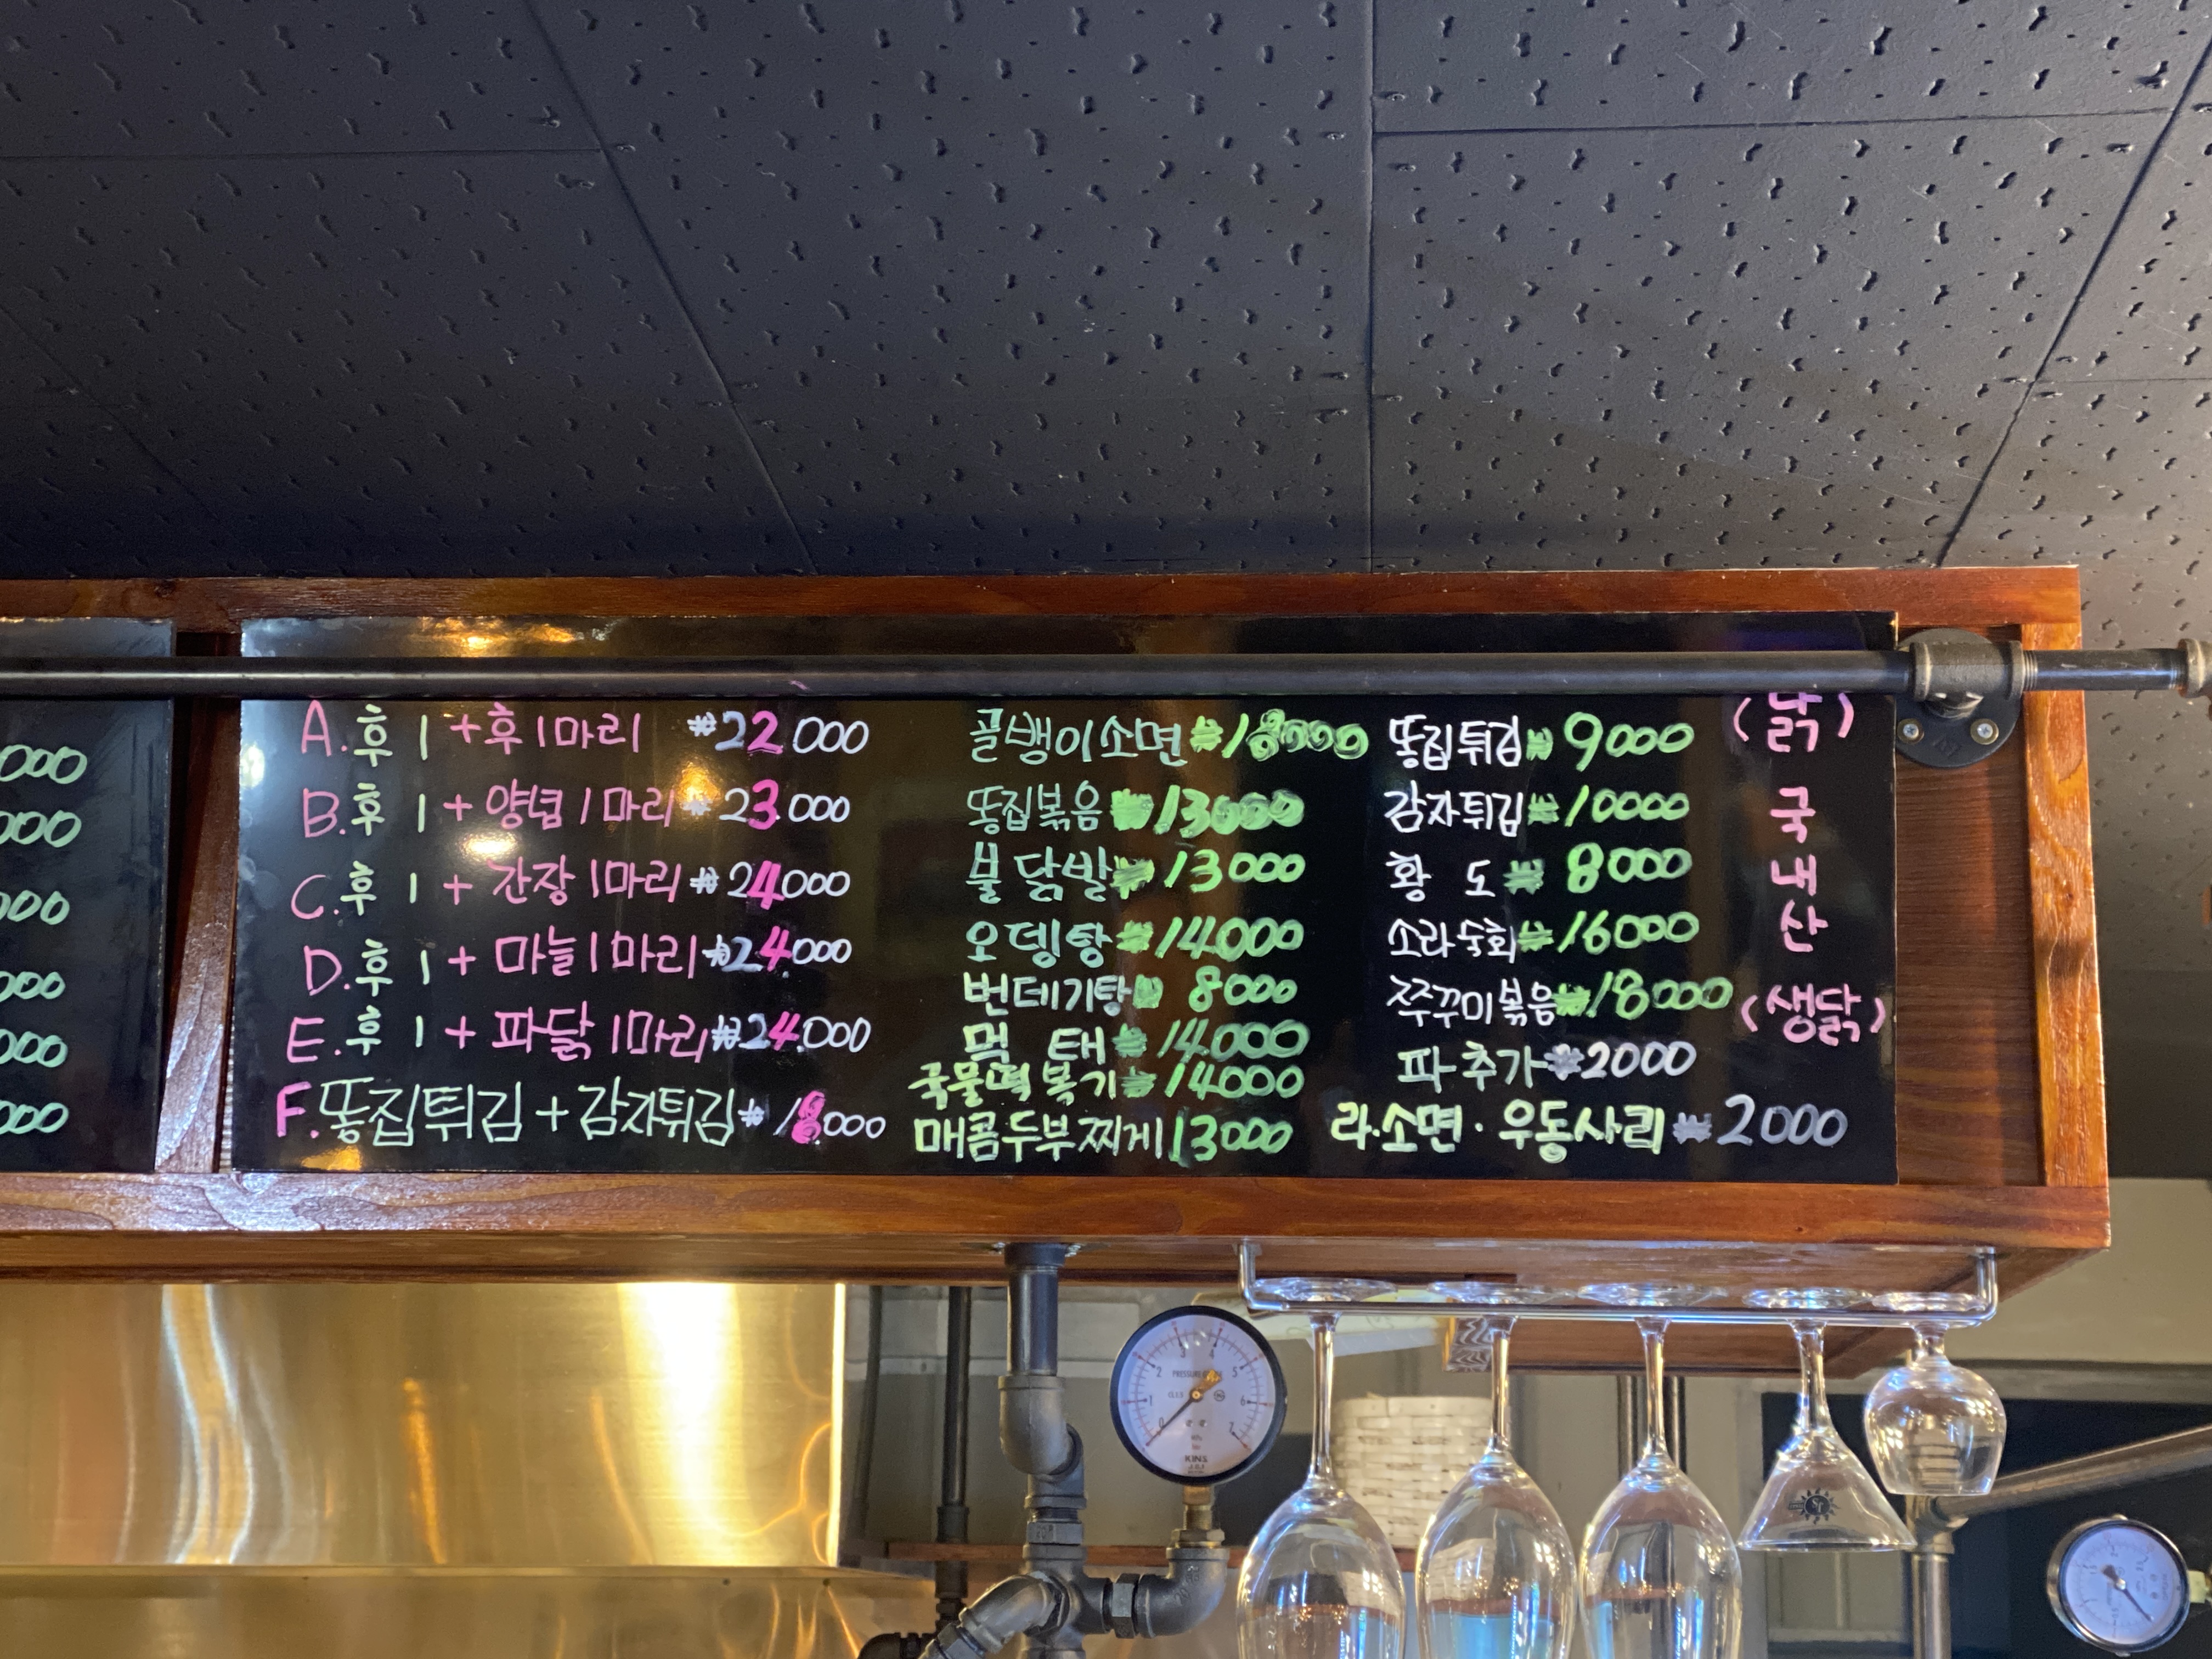 000
000
000
000
000
000
A. 후 1 + 후 1마리 ₩22.000
B. 후 1 + 양념 1마리 ₩23.000
C. 후 1 + 간장 1마리 ₩24.000
D. 후 1 + 마늘 1마리 ₩24.000
E. 후 1 + 파닭 1마리 ₩24.000
F. 똥집튀김 + 감자튀김 ₩18.000
골뱅이소면 ₩18000
똥집볶음 ₩13000
불닭발 ₩13000
오뎅탕 ₩14000
번데기탕 ₩8000
먹태 ₩14.000
국물떡볶기 ₩14000
매콤두부찌게 13000
똥집튀김 ₩9000
감자튀김 ₩10000
황도 ₩8000
소라숙회 ₩16000
쭈꾸미볶음 ₩18000
파추가 ₩2000
라.소면·우동사리 ₩2000
(닭)
국
내
산
(생닭)
PRESSURE
KINS